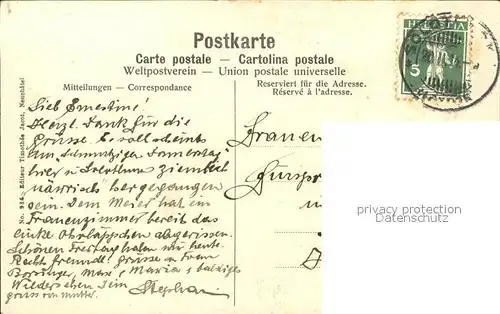 Postkarte
Carte postale — Cartolina postale
Weltpostverein — Union postale universelle
Mitteilungen — Correspondance
Reserviert für die Adresse.
Réservé à l'adresse.
HELVETIA
5
No. 824, Editeur Timothée Jacot, Neuchâtel
Lieb. Ernestine!
Herzl. Dank für die
Grüsse. Es soll scheints
am "schmutzigen Donnerstag"
hier in Solothurn ziemlich
närrisch hergegangen
sein. Dem Meier hat ein
Frauenzimmer bereit das
linke Ohrläppchen abgerissen.
Schönen Freitag haben wir heute.
Recht freundl. Grüsse an Frau
Maria & baldiges
Wiedersehen Dein Stephan
gruss von Mutter.
Frauen
privacy protection
Datenschutz